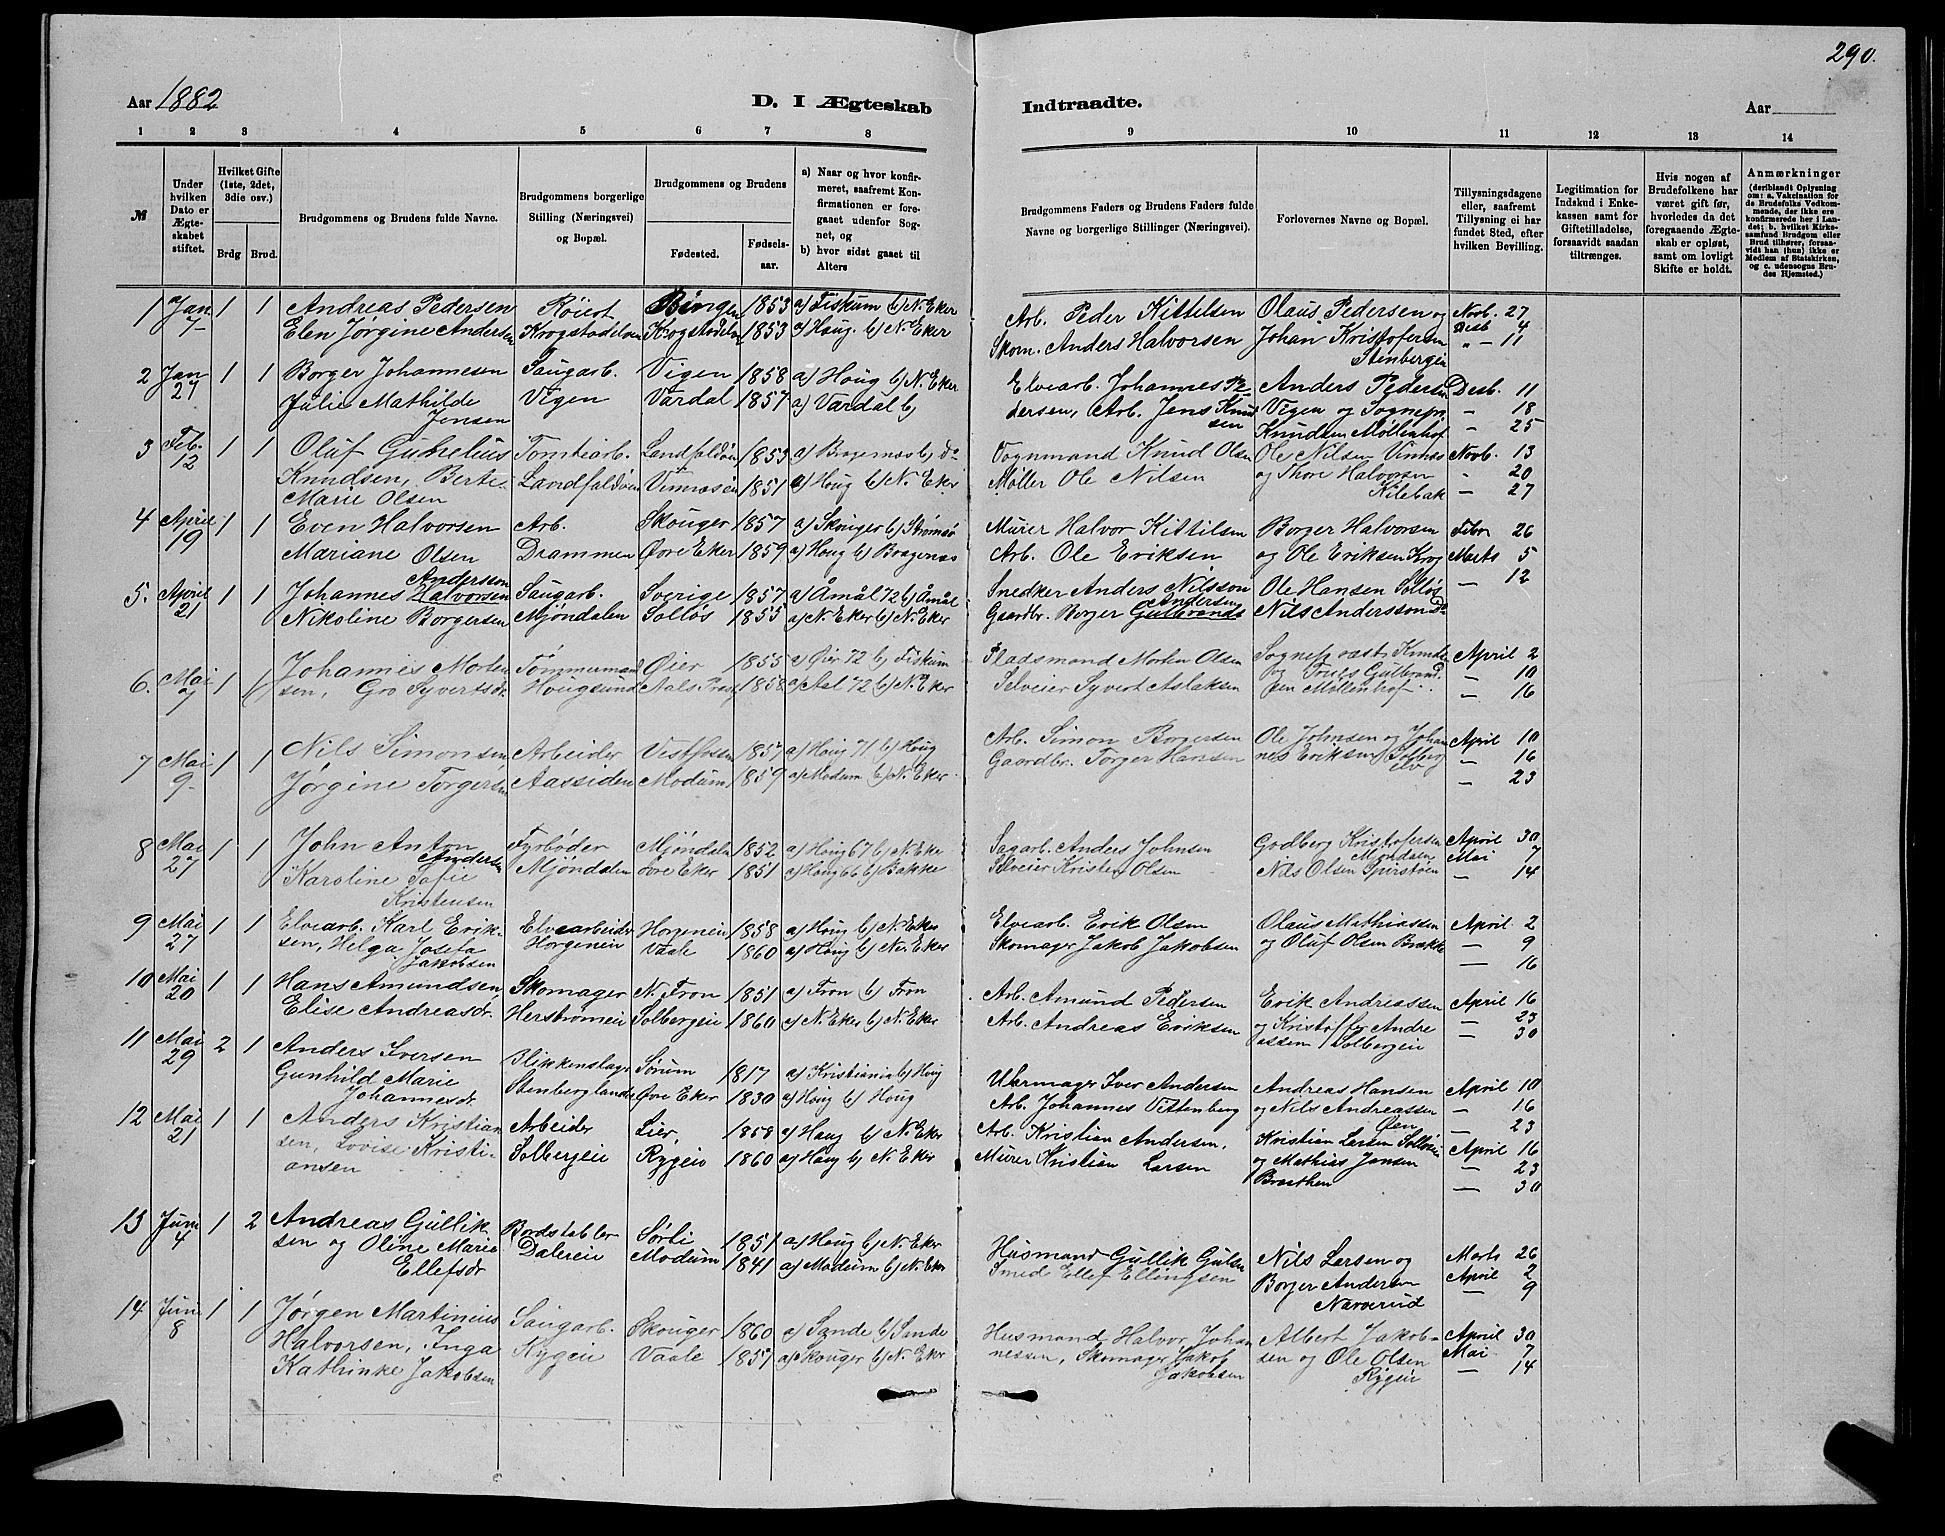 290.
Aar 1882
D. I Ægteskab
Indtraadte.
Aar
1 2 3 4 5 6 7 8
9 10 11 12 13 14
№
Under hvilken Dato er Ægteskabet stiftet.
Hvilket Gifte (1ste, 2det, 3die osv.)
Brdg Brud.
Brudgommens og Brudens fulde Navne.
Brudgommens borgerlige Stilling (Næringsvei) og Bopæl.
Brudgommens og Brudens
Fødested.
Fødselsaar.
a) Naar og hvor konfirmeret, saafremt Konfirmationen er foregaaet udenfor Sognet, og
b) hvor sidst gaaet til Alters
Brudgommens Faders og Brudens Faders fulde Navne og borgerlige Stillinger (Næringsvei).
Forlovernes Navne og Bopæl.
Tillysningsdagene eller, saafremt Tillysning ei har fundet Sted, efter hvilken Bevilling.
Legitimation for Indskud i Enkekassen samt for Giftetilladelse, forsaavidt saadan tiltrænges.
Hvis nogen af Brudefolkene har været gift før, hvorledes da det foregaaende Ægteskab er opløst, samt om lovligt Skifte er holdt.
Anmærkninger
(deriblandt Oplysning om: a. Vakcination for de Brudefolks Vedkommende, der ikke ere konfirmerede her i Landet; b. hvilket Kirkesamfund Brudgom eller Brud tilhører, forsaavidt han (hun) ikke er Medlem af Statskirken, og c. udensogns Brudes Hjemsted.)
1 Jan 1 1 Andreas Pedersen Røiert Bingen 1853 a) Fiskum b) N. Eker Arb. Peder Kittilsen Olaus Pedersen og Novb. 27
7 Elen Jørgine Andersen Krogstadelven Krogstadelven 1853 a) Houg. b) N. Eker Skom. Anders Halvorsen Johan Kristofersen Desb 4
Stenbergeie " – 11
2 Jan 1 1 Borger Johannesen Saugarb. Vigen 1858 a) Houg b) N. Eker Elvearb. Johannes Pe Anders Pedersen Desb. 11
27 Julie Mathilde Vigen Vardal 1857 a) Vardal b) dersen, Arb. Jens Knud Vigen og Sognepr. – 18
Jensen sen Knudsen Møllenhof – 25
3 Feb. 1 1 Oluf Guhelius Tomtearb. Landfaldøen 1853 a) Bragernæs b) do Vognmand Knud Olsen Ole Nilsen Vinnæs Novb. 13
12 Knudsen, Berte Landfaldøen 1851 a) Houg b) N. Eker Møller Ole Nilsen og Thore Halvorsen – 20
Marie Olsen Kilebak – 27
4 April 1 1 Even Halvorsen Arb. Skouger 1857 a) Skouger b) Strømsø Murer Halvor Kittilsen Borger Halvorsen Febr 26
19 Mariane Olsen Drammen Øvre Eker 1859 a) Houg b) Bragenæs Arb. Ole Eriksen og Ole Eriksen Krog Marts 5
– 12
Andersson
5. April 1 1 Johannes Halvorsen Saugarb. Sverige 1857 a) Åmål 72 b) Åmål Snedker Anders Nilsson Ole Hansen Solløs
Andersen
21 Nikoline Borgersen Mjøndalen Solløs 1855 a) N. Eker b) N. Eker Gaardbr. Borger Gulbrands Nils Andersson Do
6. Mai 1 1 Johannes Morten Tømmermand Øier 1855 a) Øier 72 b) Fiskum Pladsmand Morten Olsen Sognepræst Knudsen April 2
7 sen, Gro Syvertsdr Hougsund Aals Præg 1858 a) Aal 72 b) N. Eker Selveier Syvert Aslaksen og Truls Gulbrand – 10
sen Møllenhof – 16
7 Mai 1 1 Nils Simonsen Arbeider Vestfossen 1857 a) Houg 71 b) Houg Arb. Simon Borgersen Ole Johnsen og Johan April 10
9 Jørgine Torgersen Aassiden Modum 1859 a) Modum b) N. Eker Gaardbr. Torger Hansen nes Eriksen Solberg – 16
elv – 23
8 Mai 1 1 John Anton Fyrbøder Mjøndalen 1852 a) Houg 67 b) N. Eke Sagarb. Anders Johnsen Godberg Kristofersen April 30
27 Andersen Mjøndalen Øvre Eker 1851 a) Houg 66 b) Bakke Selveier Kristen Olsen Mai 7
Karoline Sofie Nils Olsen – 14
Kristensen
9 Mai 1 1 Elvearb. Karl Erik- Elvearbeider Horgeneie 1858 a) Houg b) N. Eker Elvearb. Erik Olsen Olaus Mathiassen April 2
27 sen, Helga Josefa Horgeneie Vaale 1860 a) Houg b) N. Eker Skomager Jakob Jakobsen og Oluf Olsen Brække – 9
Jakobsen – 16
10 Mai 1 1 Hans Amundsen, Skomager N. Fron 1851 a) Fron b) Fron Arb. Amund Pedersen Erik Andreassen April 16
20 Elise Andreasdr. Herstrømeie Solbergeie 1860 a) N. Eker b) N. Eker Arb. Andreas Eriksen og Kristoffer Andre – 23
assen / Solbergeie – 30
11 Mai 2 1 Anders Iversen Blikkenslager Sørum 1817 a) Kristiania b) Houg Uhrmager Iver Andersen Andreas Hansen April 10
29 Gunhild Marie Stenbergland Øvre Eker 1830 a) Houg b) Houg Arb. Johannes Vittenberg og Nils Andreassen – 16
Johannesdr. Øen – 23
12 Mai 1 1 Anders Kristian Arbeider Lier, 1858 a) Houg b) N. Eker Arb. Kristian Andersen, Kristian Larsen April 16
21 sen, Lovise Kristi- Solbergeie Rygeie 1860 a) Houg b) N. Eker Murer Kristian Larsen og Mathias Jensen – 23
ansen Braathen – 30
13 Juni 1 2 Andreas Gullik Bordstabler Sørli 1851 a) Houg b) N. Eker Husmand Gullik Gulsen Nils Larsen og Marts 26
4 sen og Oline Marie Dalereie Modum 1841 a) Modum b) N. Eker Smed Ellef Ellingsen Borger Andersen April 2
Ellefsdr Narverud – 9
14 Juni 1 1 Jørgen Martinius Saugarb. Skouger 1860 a) Sande b) Sande Husmand Halvor Johan Albert Jakob- April 30
8 Halvorsen, Inga Rygeie Vaale 1857 a) Skouger b) N. Eker nessen, Skomager Jakob sen og Ole Olsen Mai 7
Kathinke Jakobsen Jakobsen Rygeie – 14